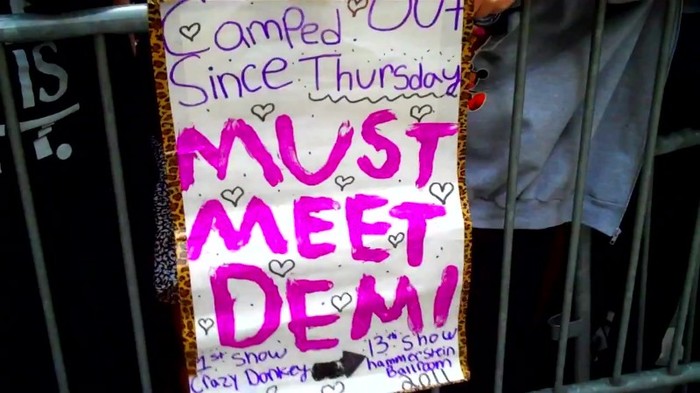 Camped Out
Since Thursday
MUST
MEET
DEMI
1st Show
Crazy Donkey
13th Show
hammerstein
Ballroom
2011
IS